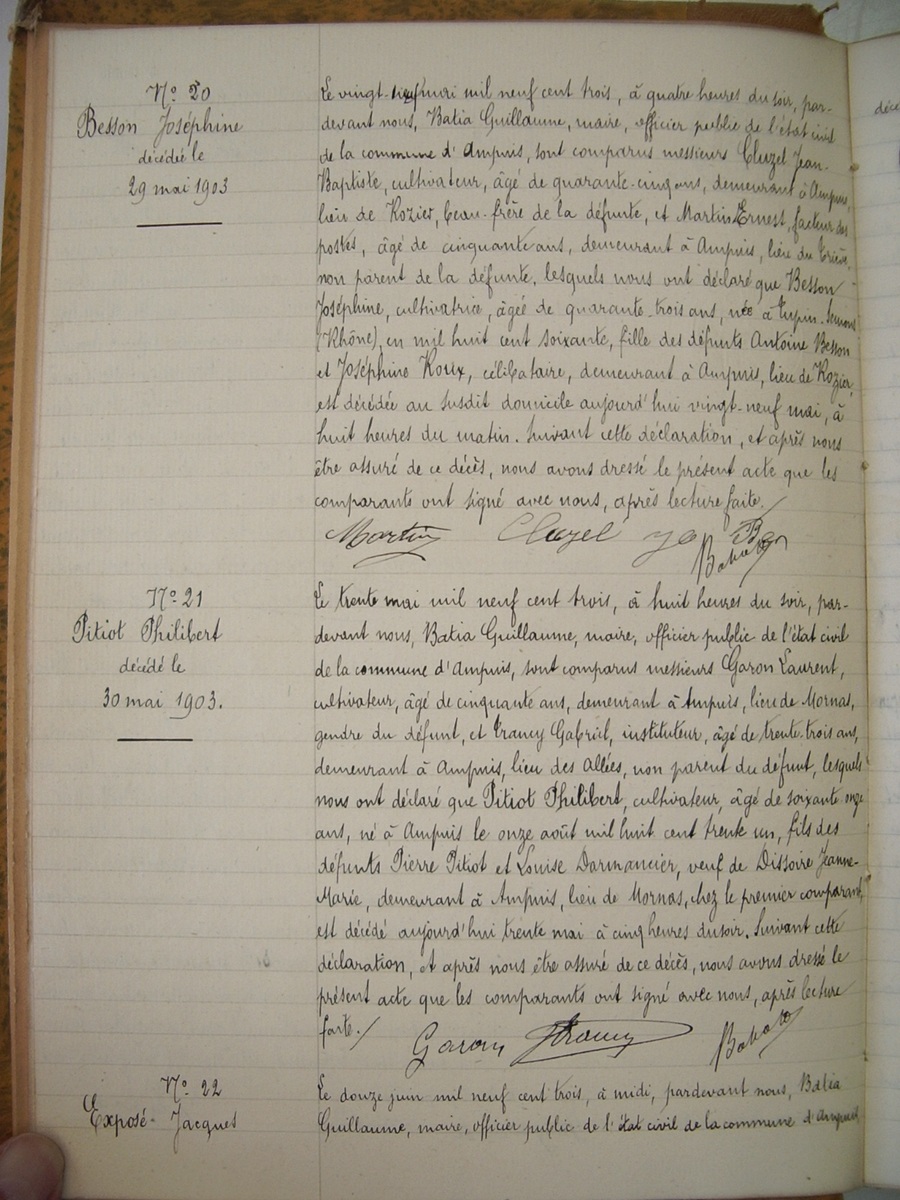 Nº 20
Besson Joséphine
décédée le
29 mai 1903
Le vingt-neuf mai mil neuf cent trois, à quatre heures du soir, par-
devant nous, Batia Guillaume, maire, officier public de l'état civil
de la commune d'Ampuis, sont comparus messieurs Cluzel Jean-
Baptiste, cultivateur, âgé de quarante-cinq ans, demeurant à Ampuis,
lieu de Rozier, beau-frère de la défunte, et Martin Ernest, facteur des
postes, âgé de cinquante ans, demeurant à Ampuis, lieu du
non parent de la défunte, lesquels nous ont déclaré que Besson
Joséphine, cultivatrice, âgée de quarante-trois ans, née à Tupin-Semons
(Rhône), en mil huit cent soixante, fille des défunts Antoine Besson
et Joséphine Roux, célibataire, demeurant à Ampuis, lieu de Rozier,
est décédée au susdit domicile aujourd'hui vingt-neuf mai, à
huit heures du matin. Suivant cette déclaration, et après nous
être assuré de ce décès, nous avons dressé le présent acte que les
comparants ont signé avec nous, après lecture faite.
Martin Cluzel
Nº 21
Pitiot Philibert
décédé le
30 mai 1903.
Le trente mai mil neuf cent trois, à huit heures du soir, par-
devant nous, Batia Guillaume, maire, officier public de l'état civil
de la commune d'Ampuis, sont comparus messieurs Garon Laurent,
cultivateur, âgé de cinquante ans, demeurant à Ampuis, lieu de Mornas,
gendre du défunt, et Francy Gabriel, instituteur, âgé de trente-trois ans,
demeurant à Ampuis, lieu des Allées, non parent du défunt, lesquels
nous ont déclaré que Pitiot Philibert, cultivateur, âgé de soixante onze
ans, né à Ampuis le onze août mil huit cent trente un, fils des
défunts Pierre Pitiot et Louise Dormancier, veuf de Dissoire Jeanne-
Marie, demeurant à Ampuis, lieu de Mornas, chez le premier comparant,
est décédé aujourd'hui trente mai à cinq heures du soir. Suivant cette
déclaration, et après nous être assuré de ce décès, nous avons dressé le
présent acte que les comparants ont signé avec nous, après lecture
faite./.
Garon Francy
Nº 22
Exposé-Jacques
Le douze juin mil neuf cent trois, à midi, pardevant nous, Batia
Guillaume, maire, officier public de l'état civil de la commune d'Ampuis,